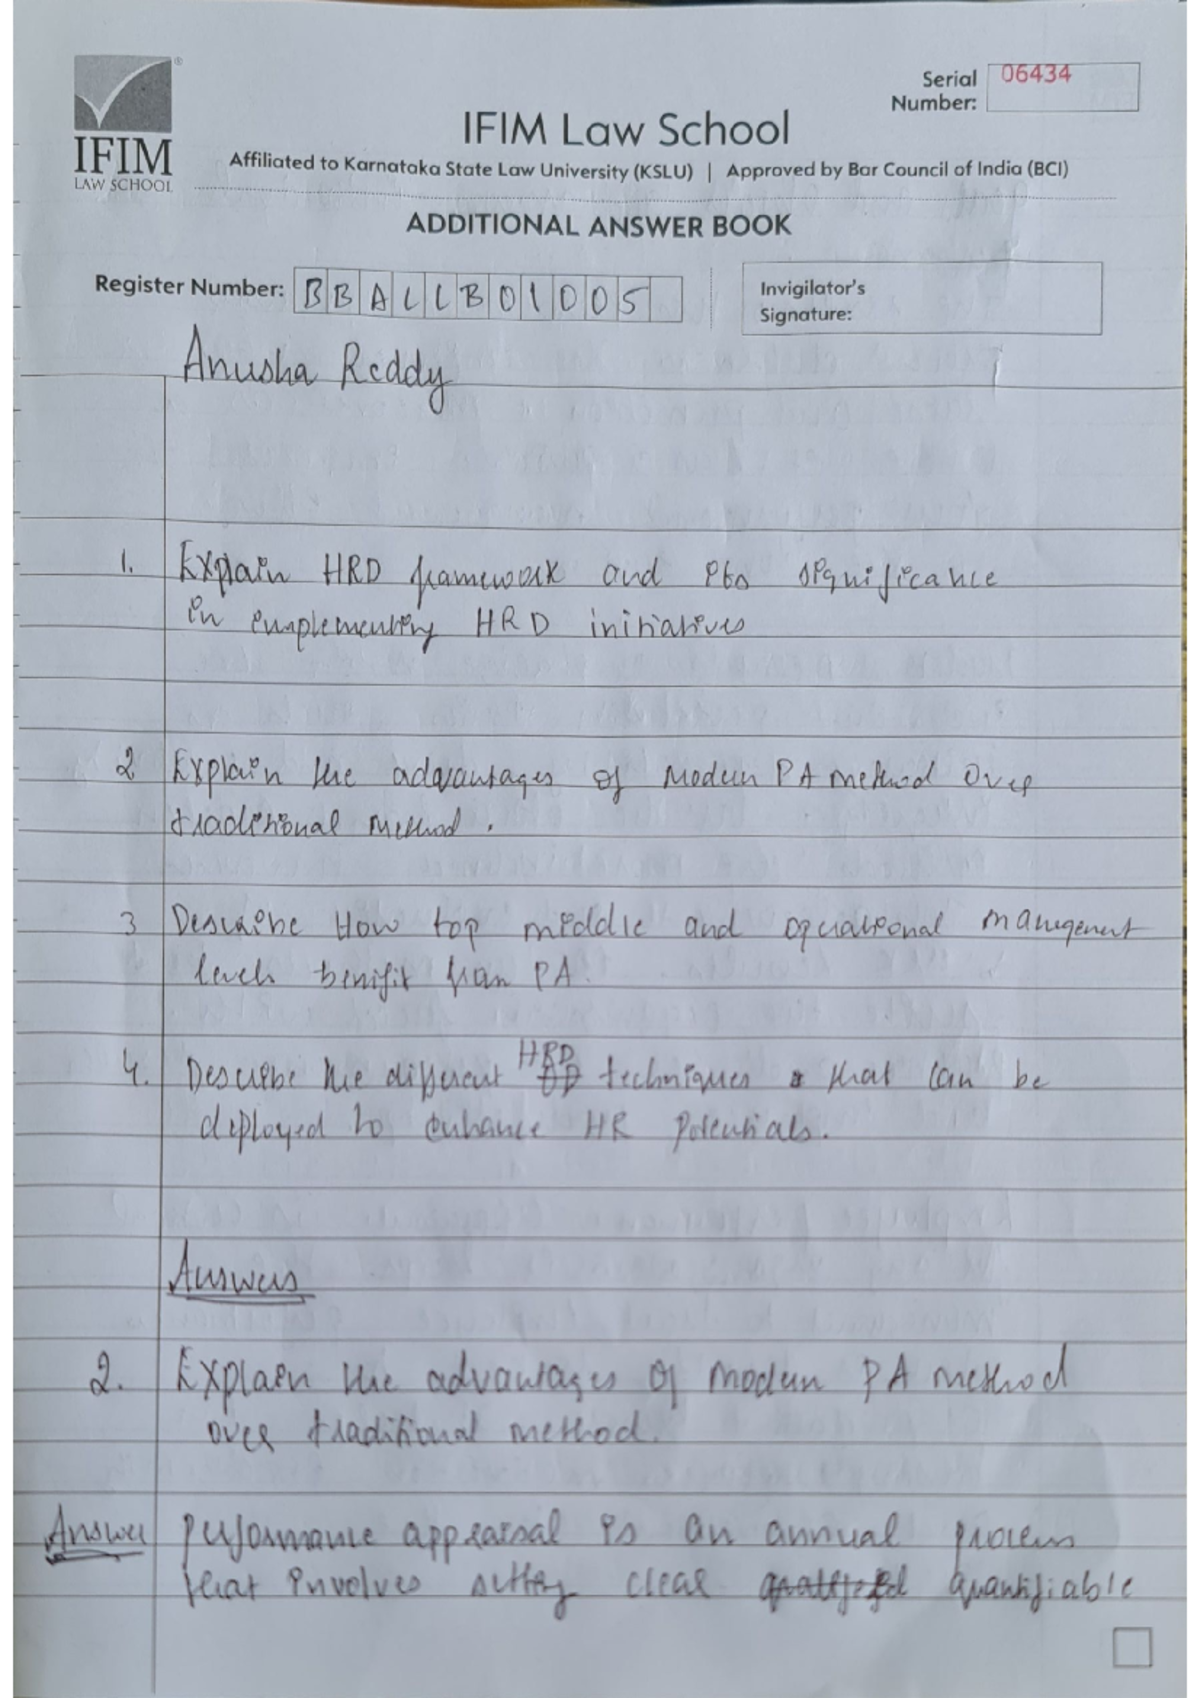 Serial
Number:
06434
IFIM
LAW SCHOOL
IFIM Law School
Affiliated to Karnataka State Law University (KSLU) | Approved by Bar Council of India (BCI)
ADDITIONAL ANSWER BOOK
Register Number: BBALLB01005
Invigilator's
Signature:
Anusha Reddy
1. Explain HRD framework and its significance
in implementing HRD initiatives
2 Explain the advantages of Modern PA method over
traditional method.
3 Describe How top middle and operational management
levels benifit from PA.
4. Describe the different HRD techniques that can be
deployed to enhance HR potentials.
Answers
2. Explain the advantages of modern PA method
over traditional method.
Answer Performance appraisal is an annual process
that involves setting clear quantifiable